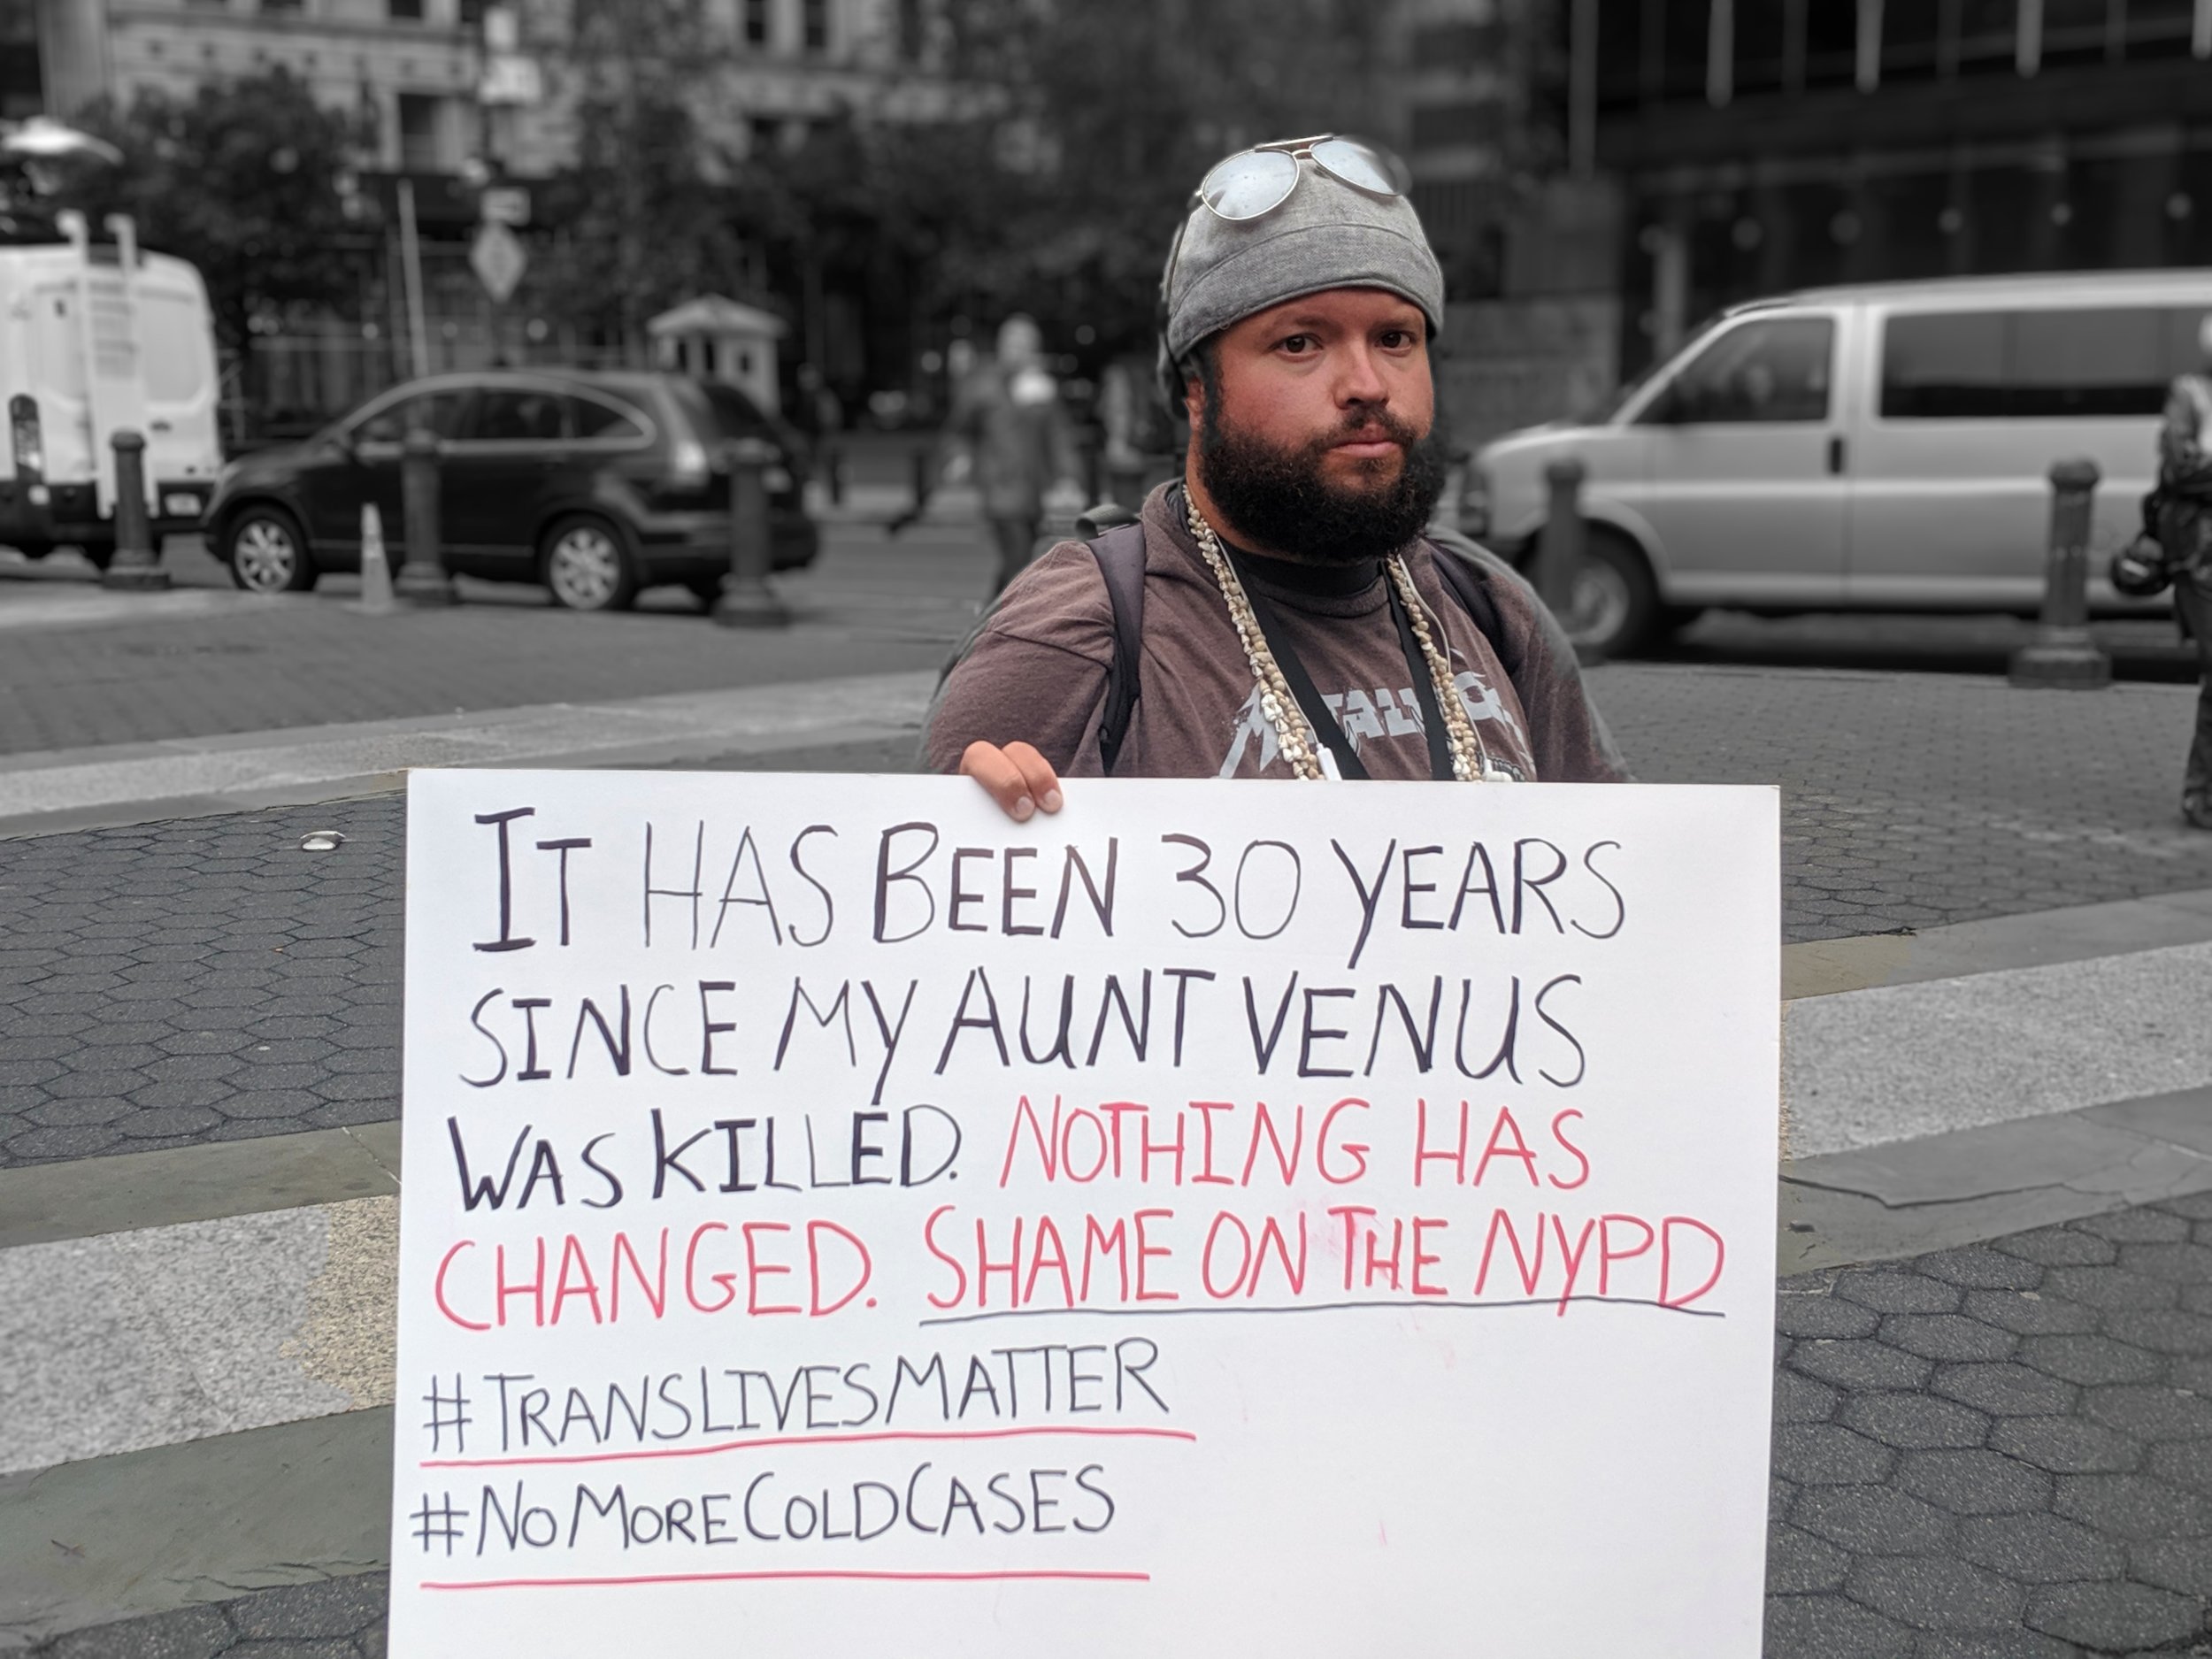 METALLICA
IT HAS BEEN 30 YEARS
SINCE MY AUNT VENUS
WAS KILLED. NOTHING HAS
CHANGED. SHAME ON THE NYPD
#TRANSLIVESMATTER
#NOMORECOLDCASES